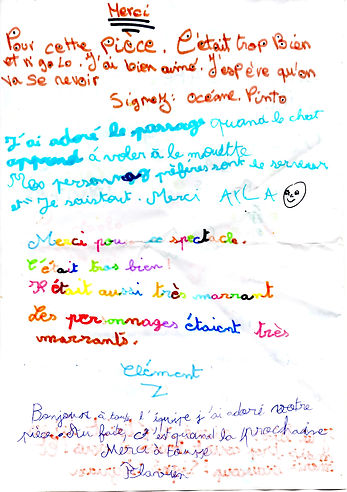 Merci
Pour cette PIÈCE. C'était trop Bien
et rigolo. J'ai bien aimé. J'espère qu'on
va se revoir
Signez: océane. Pinto
J'ai adoré le passage quand le chat
apprend à voler à le mouette
Mes personnaz préféres sont le serveur
et Je saistout. Merci AYLA
Merci pour ce spectacle.
C'était tros bien!
Il était aussi très marrant
Les personnages étaient très
marrants.
Clément
Bonjour à tous l'équipe j'ai adoré votre
pièce. Au faite, c'est quand la prochaine
Merci à tous
Flavien